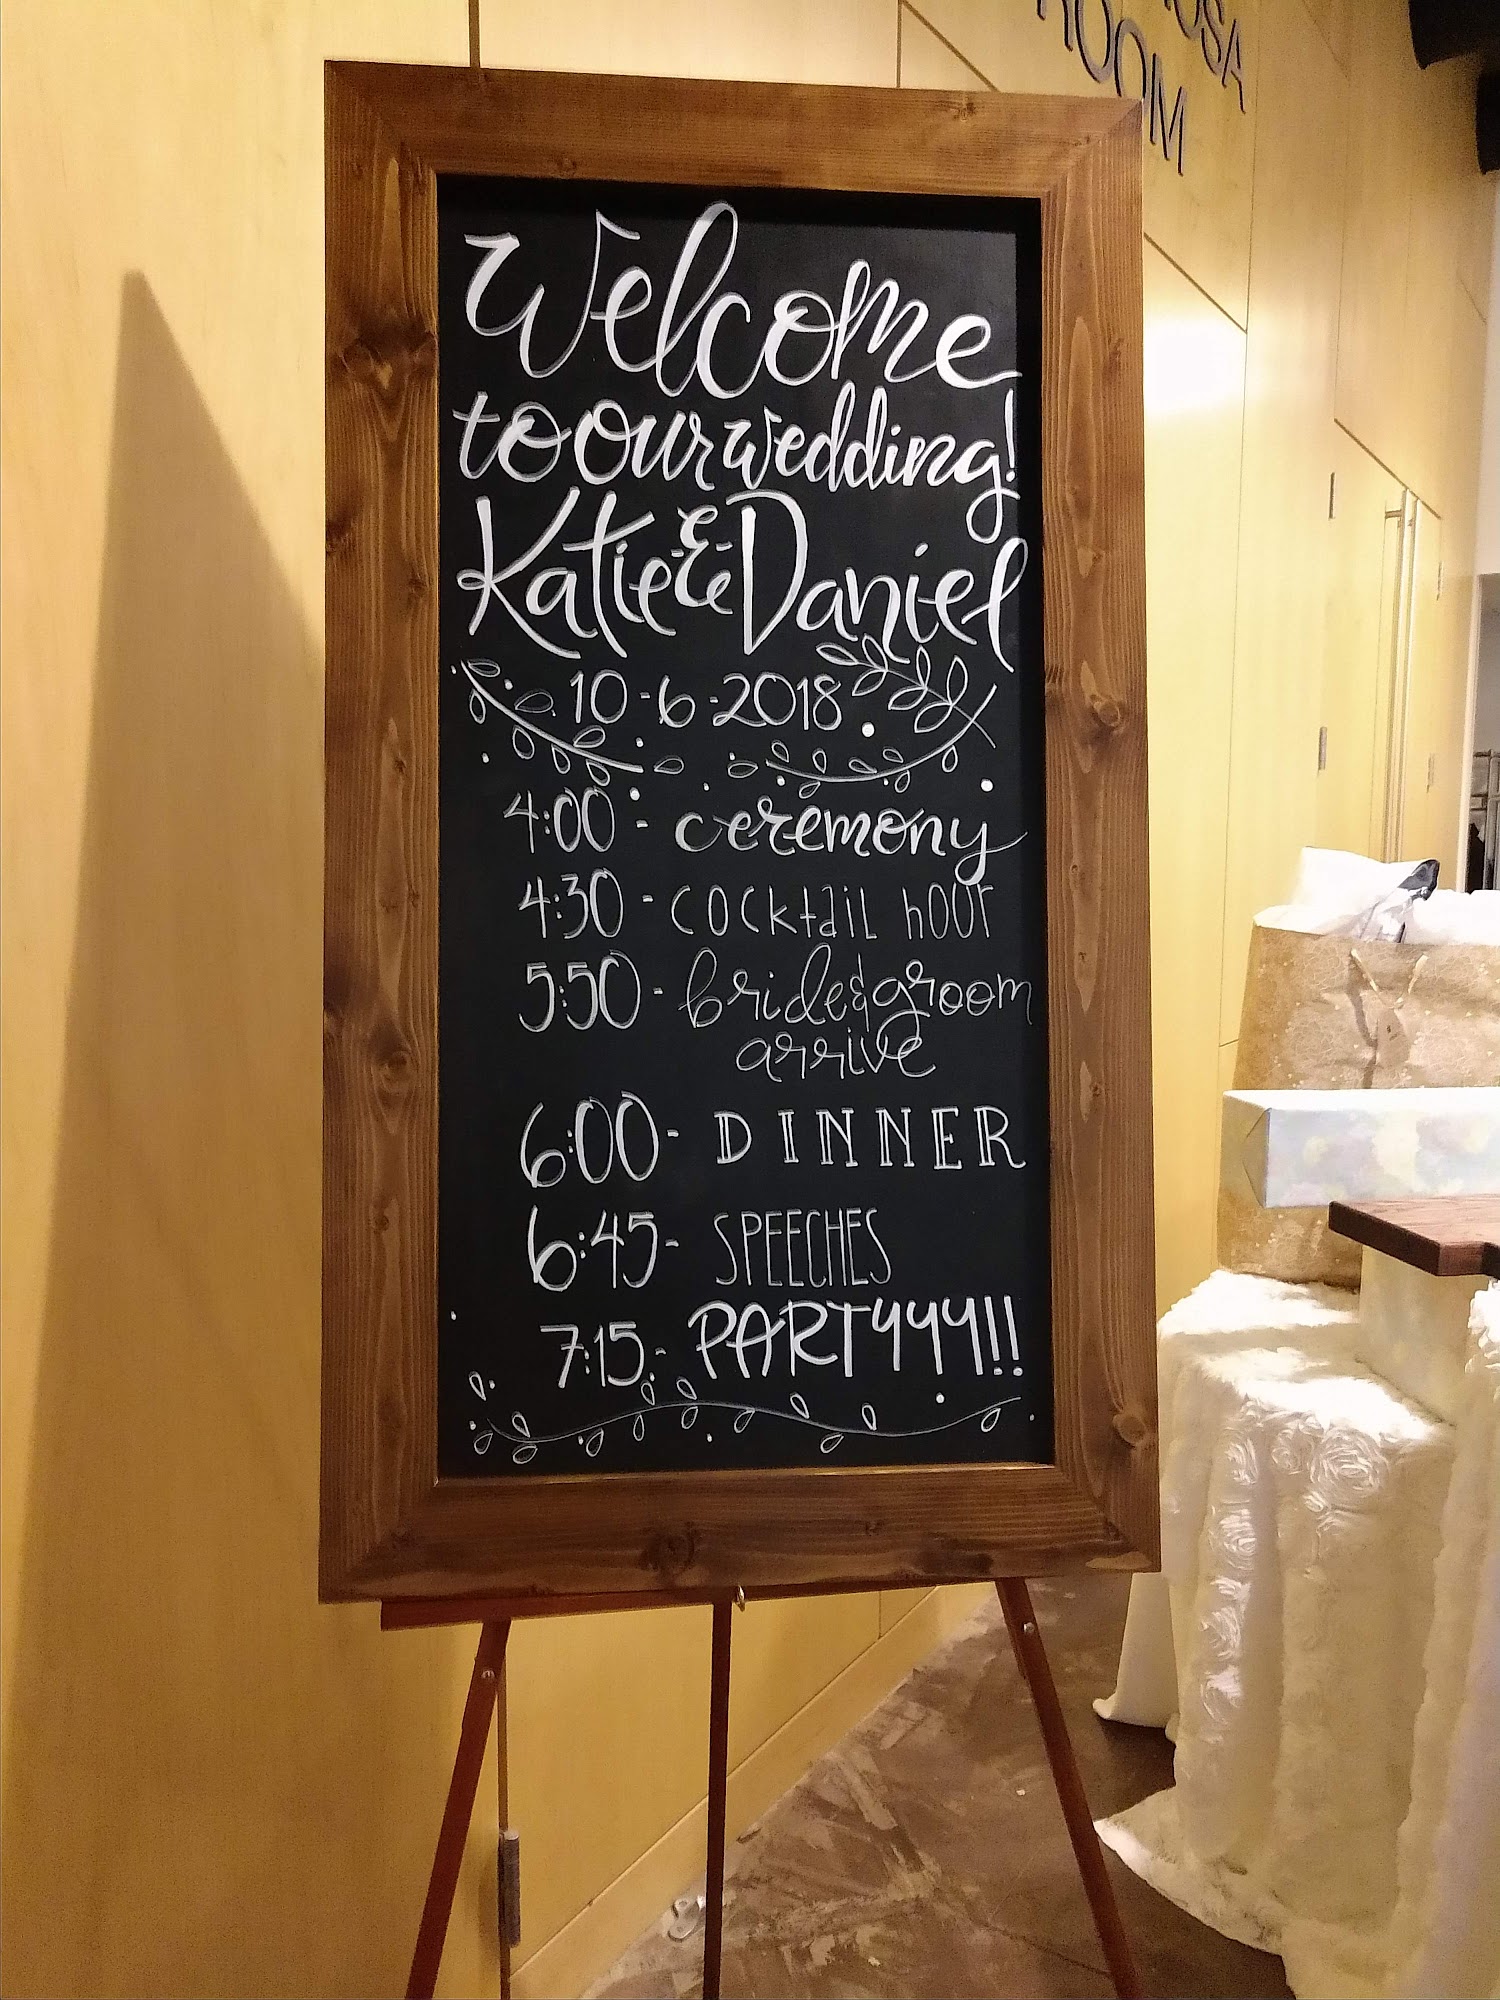 ROOM
Welcome
to our wedding!
Katie & Daniel
10-6-2018
4:00 - ceremony
4:30 - cocktail hour
5:50 - bride & groom
arrive
6:00 - DINNER
6:45 - SPEECHES
7:15 - PARTYYY!!